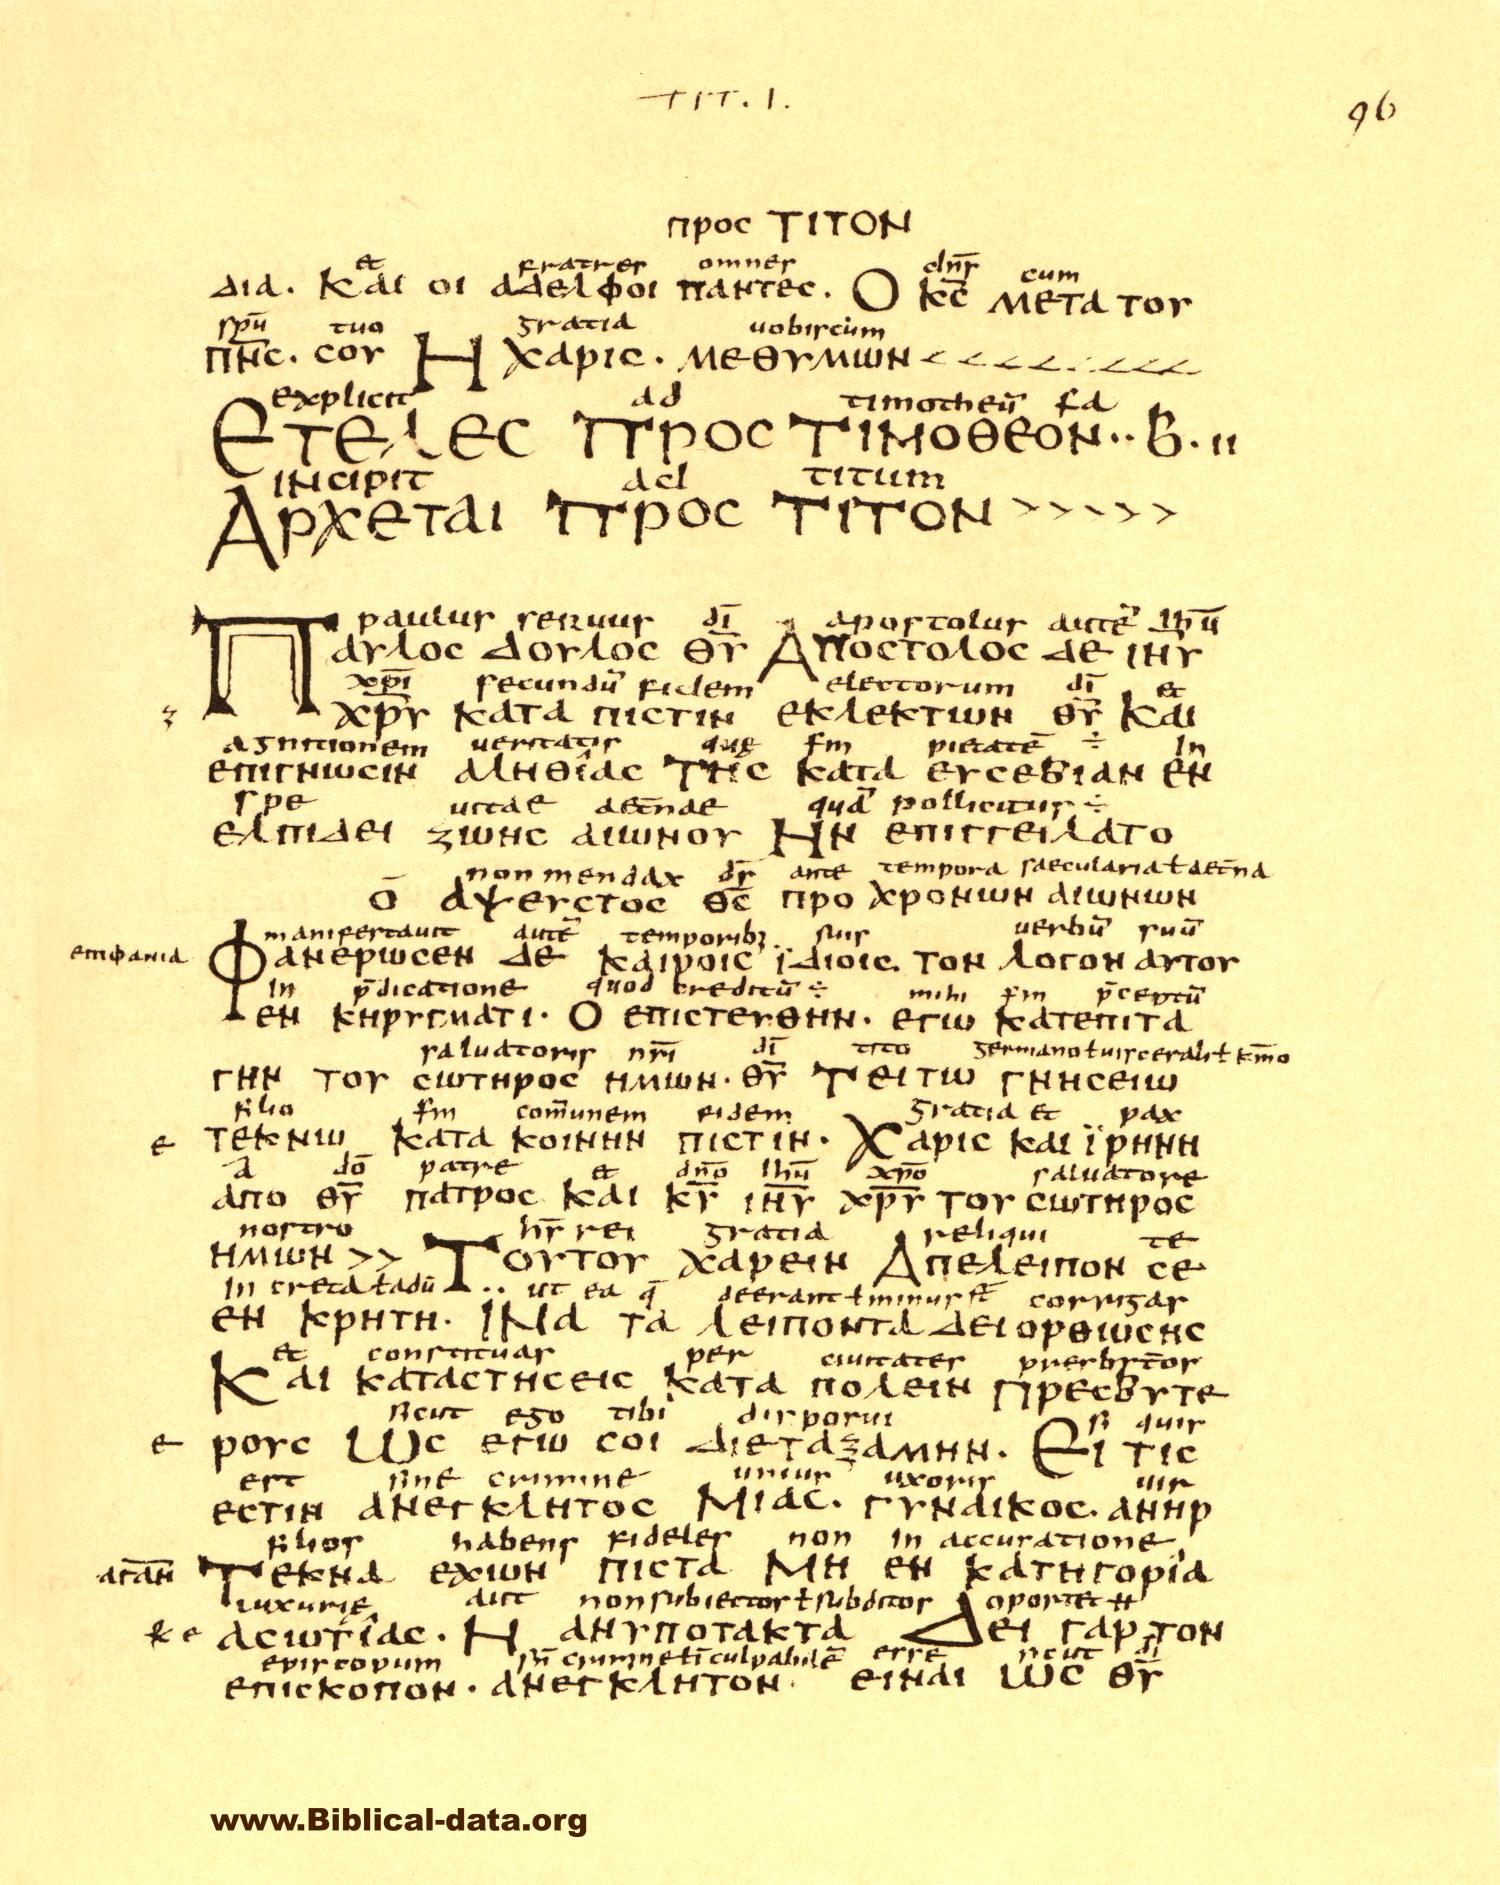 TIT. I.
96
προς ΤΙΤΟΝ
et fratres omnes dn̄s cum
δια. Και οι αδελφοι παντες. Ο κ̄c μετα τογ
sp̄u tuo gratia uobiscum
π̄ν̄c. cογ Η χαρις. μεθγμων
explicit ad timotheū
Ετελεc Προc Τιμοθεον·· Β. ιι
incipit ad titum
Αρχεται Προc Τιτον >>>>>
paulus seruus d̄i apostolus autē ihū
Παγλοc δογλοc θ̄γ Αποcτολοc δε ιη̄γ
xp̄i secundū fidem electorum d̄i et
χρ̄γ κατα πιcτιν εκλεκτιων θ̄γ Και
agnitionem ueritatis quę sm̄ pietatē ÷ In
επιγνωcιν αληθιαc Τηc κατα εγcεβιαν εν
spe uitae aet̄nae quā pollicitus ÷
ελπιδει ζωηc αιωνογ Ην επιγγειλατο
non mendax d̄s ante tempora saecularia ł aet̄na
ο̄ αψεγcτοc θ̄c προ χρονιων αιωνιων
manifestauit autē temporibꝫ suis uerbū suū
επιφανια Φανερωcεν Δε Καιροιc ϊδιοιc. τον λογον αγτογ
In p̄dicatione quod creditū ÷ mihi sm̄ p̄ceptū
εν κηργγματι· Ο επιcτεγθην· εγω κατεπιτα
saluatoris nr̄i d̄i tito germano ł uiscerali ł
γην τογ cωτηροc ημων· θ̄γ Τειτω γνηcειω
filio sm̄ com̄unem fidem gratia et pax
ε τεκνιω κατα κοινην πιcτιν· Χαριc και ϊρηνη
a dō patre et dn̄o ihū xp̄o saluatore
απο θ̄γ πατροc και κ̄γ ιη̄γ χρ̄γ τογ cωτηροc
nostro rei gratia reliqui te
ημων >> Τογτογ χαρειν Απελειπον cε
In creta ł ut ea q̄ deerant ł minus st̄ corrigas
εν κρητη· ΙΝα τα λειποντα Δειορθωcηc
et constituas per ciuitates presbyt̄os
Και καταcτηcειc κατα πολειν Πρεcβγτε
sicut ego tibi disposui si quis
ε ρογc Ωc εγω cοι διεταξαμην. Ει τιc
est sine crimine unius uxoris uir
εcτιν ανεγκλητοc Μιαc. γγναικοc. ανηρ
filios habens fideles non In accuratione
Τεκνα εχιων πιcτα Μη εν κατηγορια
luxurię aut non subiectos ł subditos oportet
αcωτιαc. Η ανγποτακτα Δει γαρ τον
episcopum esse sicut d̄i
επιcκοπον. ανεγκλητον. ειναι Ωc θ̄γ
www.Biblical-data.org